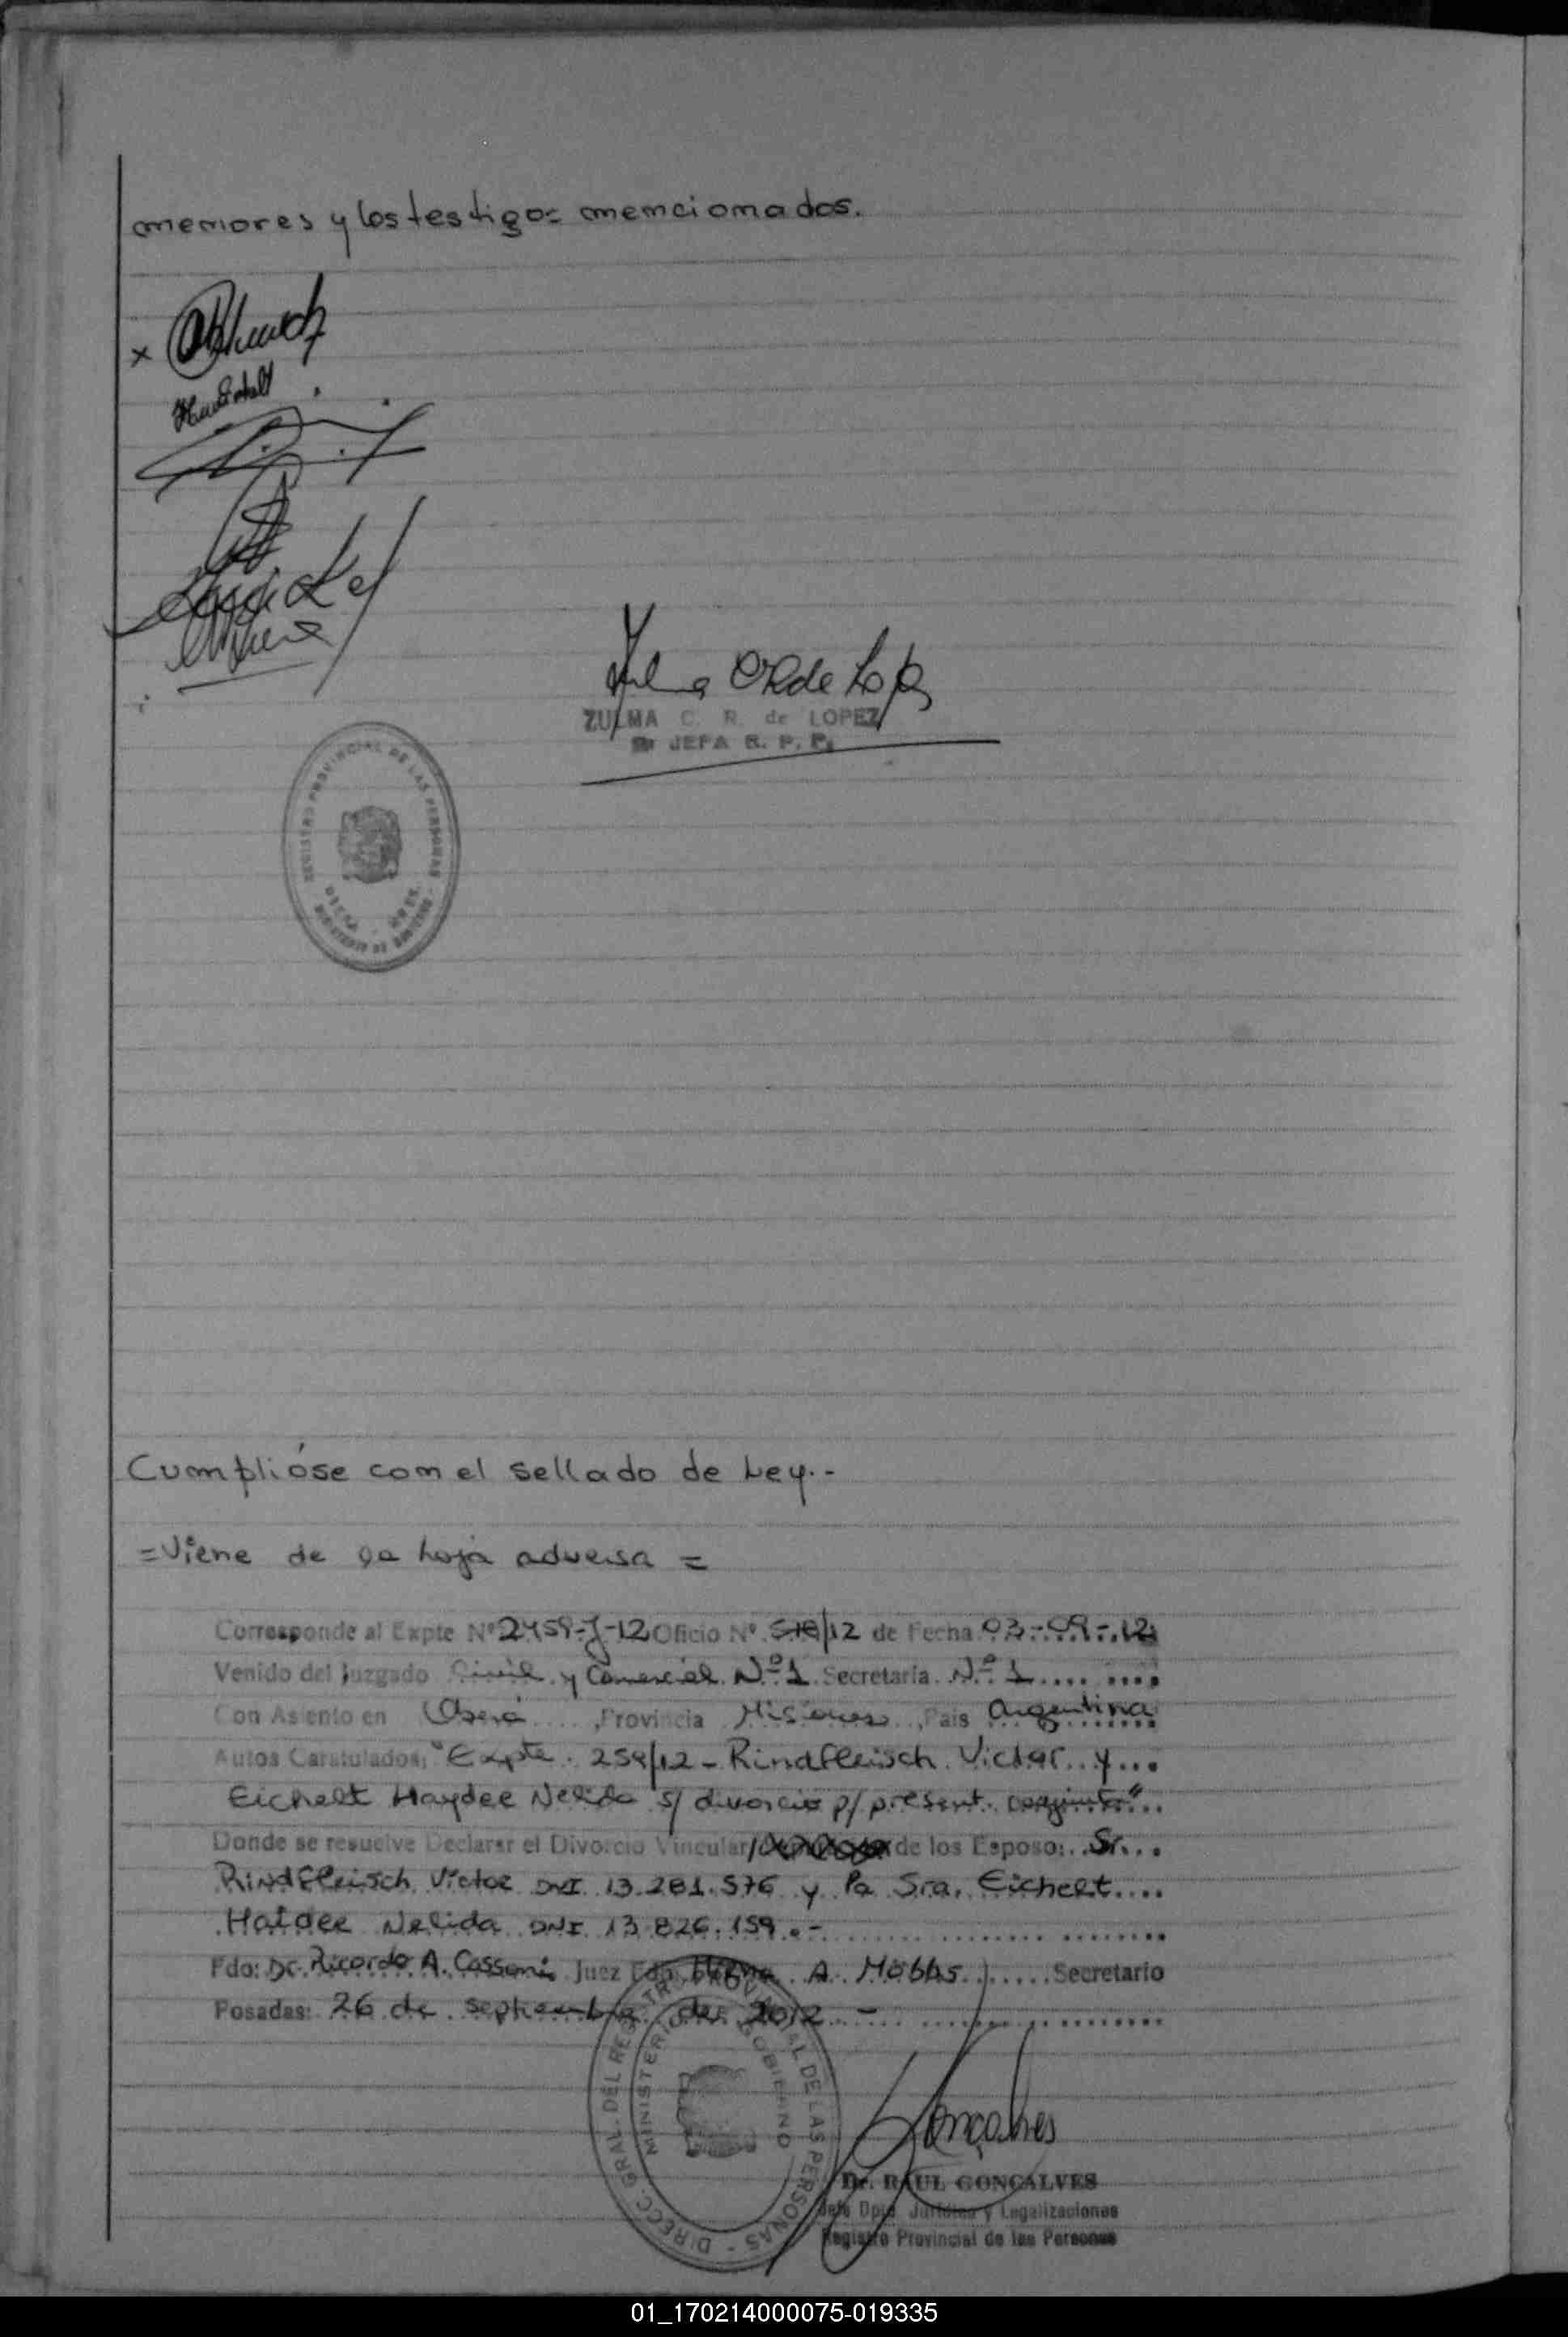 menores y los testigos mencionados.
x
ZULMA C. R. de LOPEZ
JEFA R. P. P.
REGISTRO PROVINCIAL DE LAS PERSONAS
MINISTERIO DE GOBIERNO
Cumplióse con el sellado de Ley.-
=Viene de la hoja adversa =
Corresponde al Expte Nº 2459-J-12 Oficio Nº 518/12 de Fecha 03-09-12
Venido del Juzgado Civil y Comercial Nº 1 Secretaría Nº 1
Con Asiento en Oberá, Provincia Misiones, Pais Argentina
Autos Caratulados, "Expte. 259/12 - Rindfleisch Victor y
Eichelt Haydee Nelida s/ divorcio p/ present. conjunta"
Donde se resuelve Declarar el Divorcio Vincular/ de los Esposo: Sr.
Rindfleisch Victor DNI 13.281.576 y la Sra. Eichelt
Haidee Nelida DNI 13.826.159.-
Fdo: Dr. Ricardo A. Cassoni Juez Fdo. A. Mobbs Secretario
Posadas: 26 de septiembre de 2012 -
DIRECC. GRAL. DEL REGISTRO PROVINCIAL DE LAS PERSONAS
MINISTERIO DE GOBIERNO
Goncalves
Dr. RAUL GONCALVES
Jefe Dpto. Jurídico y Legalizaciones
Registro Provincial de las Personas
01_170214000075-019335